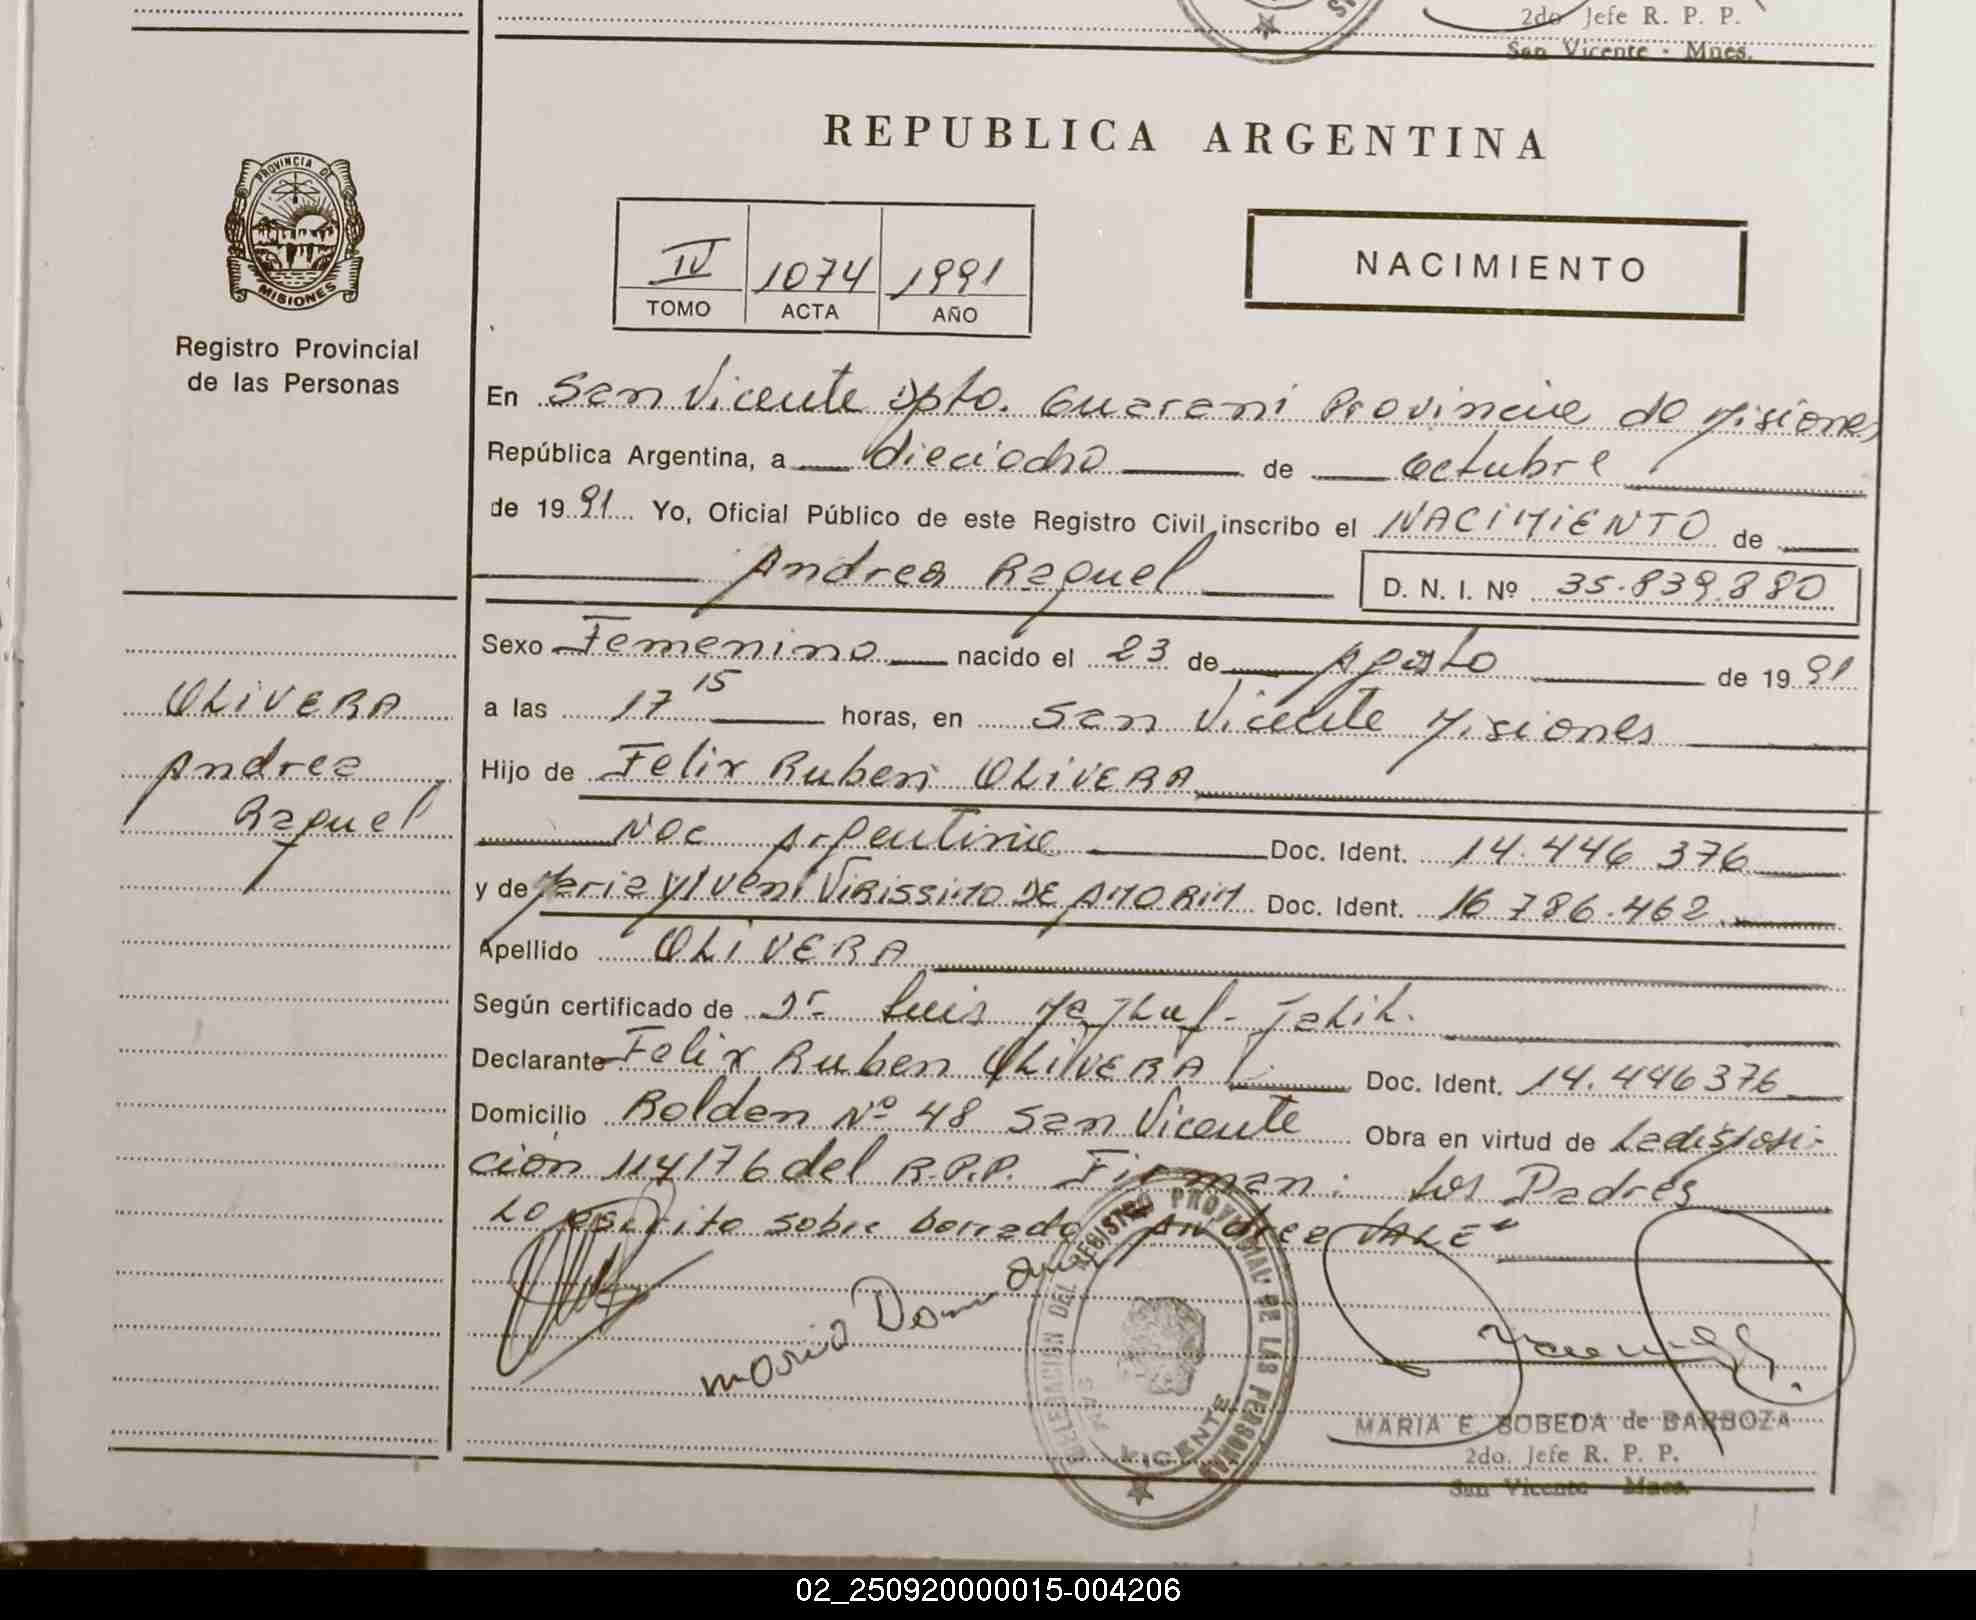 2do Jefe R. P. P.
San Vicente - Mnes.
REPUBLICA ARGENTINA
PROVINCIA DE
MISIONES
Registro Provincial
de las Personas
IV 1074 1991
TOMO ACTA AÑO
NACIMIENTO
En San Vicente Dpto. Guarani Provincia de Misiones
República Argentina, a dieciocho de octubre
de 1991 Yo, Oficial Público de este Registro Civil inscribo el NACIMIENTO de
Andrea Raquel D. N. I. Nº 35.839.880
Sexo Femenino nacido el 23 de Agosto de 1991
OLIVERA
a las 17 15 horas, en San Vicente Misiones
Andrea
Hijo de Felix Ruben OLIVERA
Raquel
Nac Argentina Doc. Ident. 14.446 376
y de Maria Ylveni VIRISSIMO DE AMORIM Doc. Ident. 16 786.462
Apellido OLIVERA
Según certificado de Dr Luis
Declarante Felix Ruben OLIVERA Doc. Ident. 14.446376
Domicilio Roldan Nº 48 San Vicente Obra en virtud de La disposi-
cion 114/76 del R.P.P. Firman: Los Padres
Lo escrito sobre borrado Andrea VALE"
Maria
DELEGACION DEL REGISTRO PROVINCIAL DE LAS PERSONAS
SAN VICENTE
MARIA E. BOBEDA de BARBOZA
2do. Jefe R. P. P.
San Vicente Mnes.
02_250920000015-004206